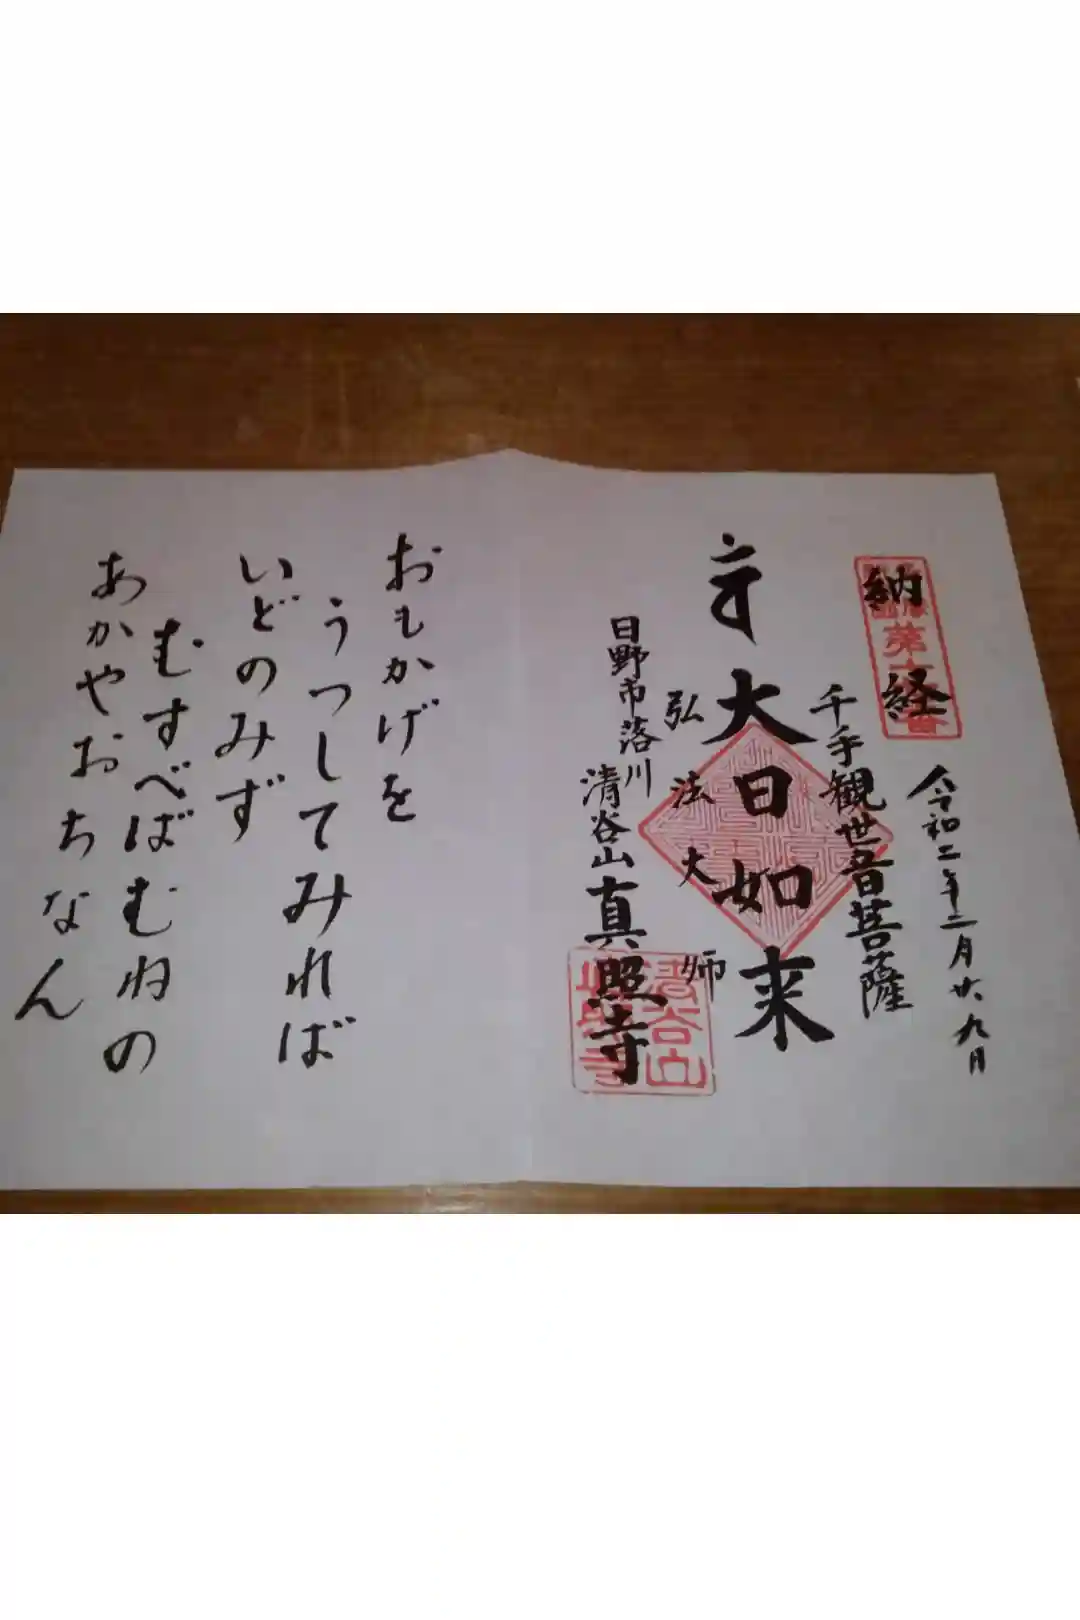 納経
令和二年二月廿九日
千手観世音菩薩
大日如来
弘法大師
日野市落川
清谷山真照寺
おもかげを
うつしてみれば
いどのみず
むすべばむねの
あかやおちなん